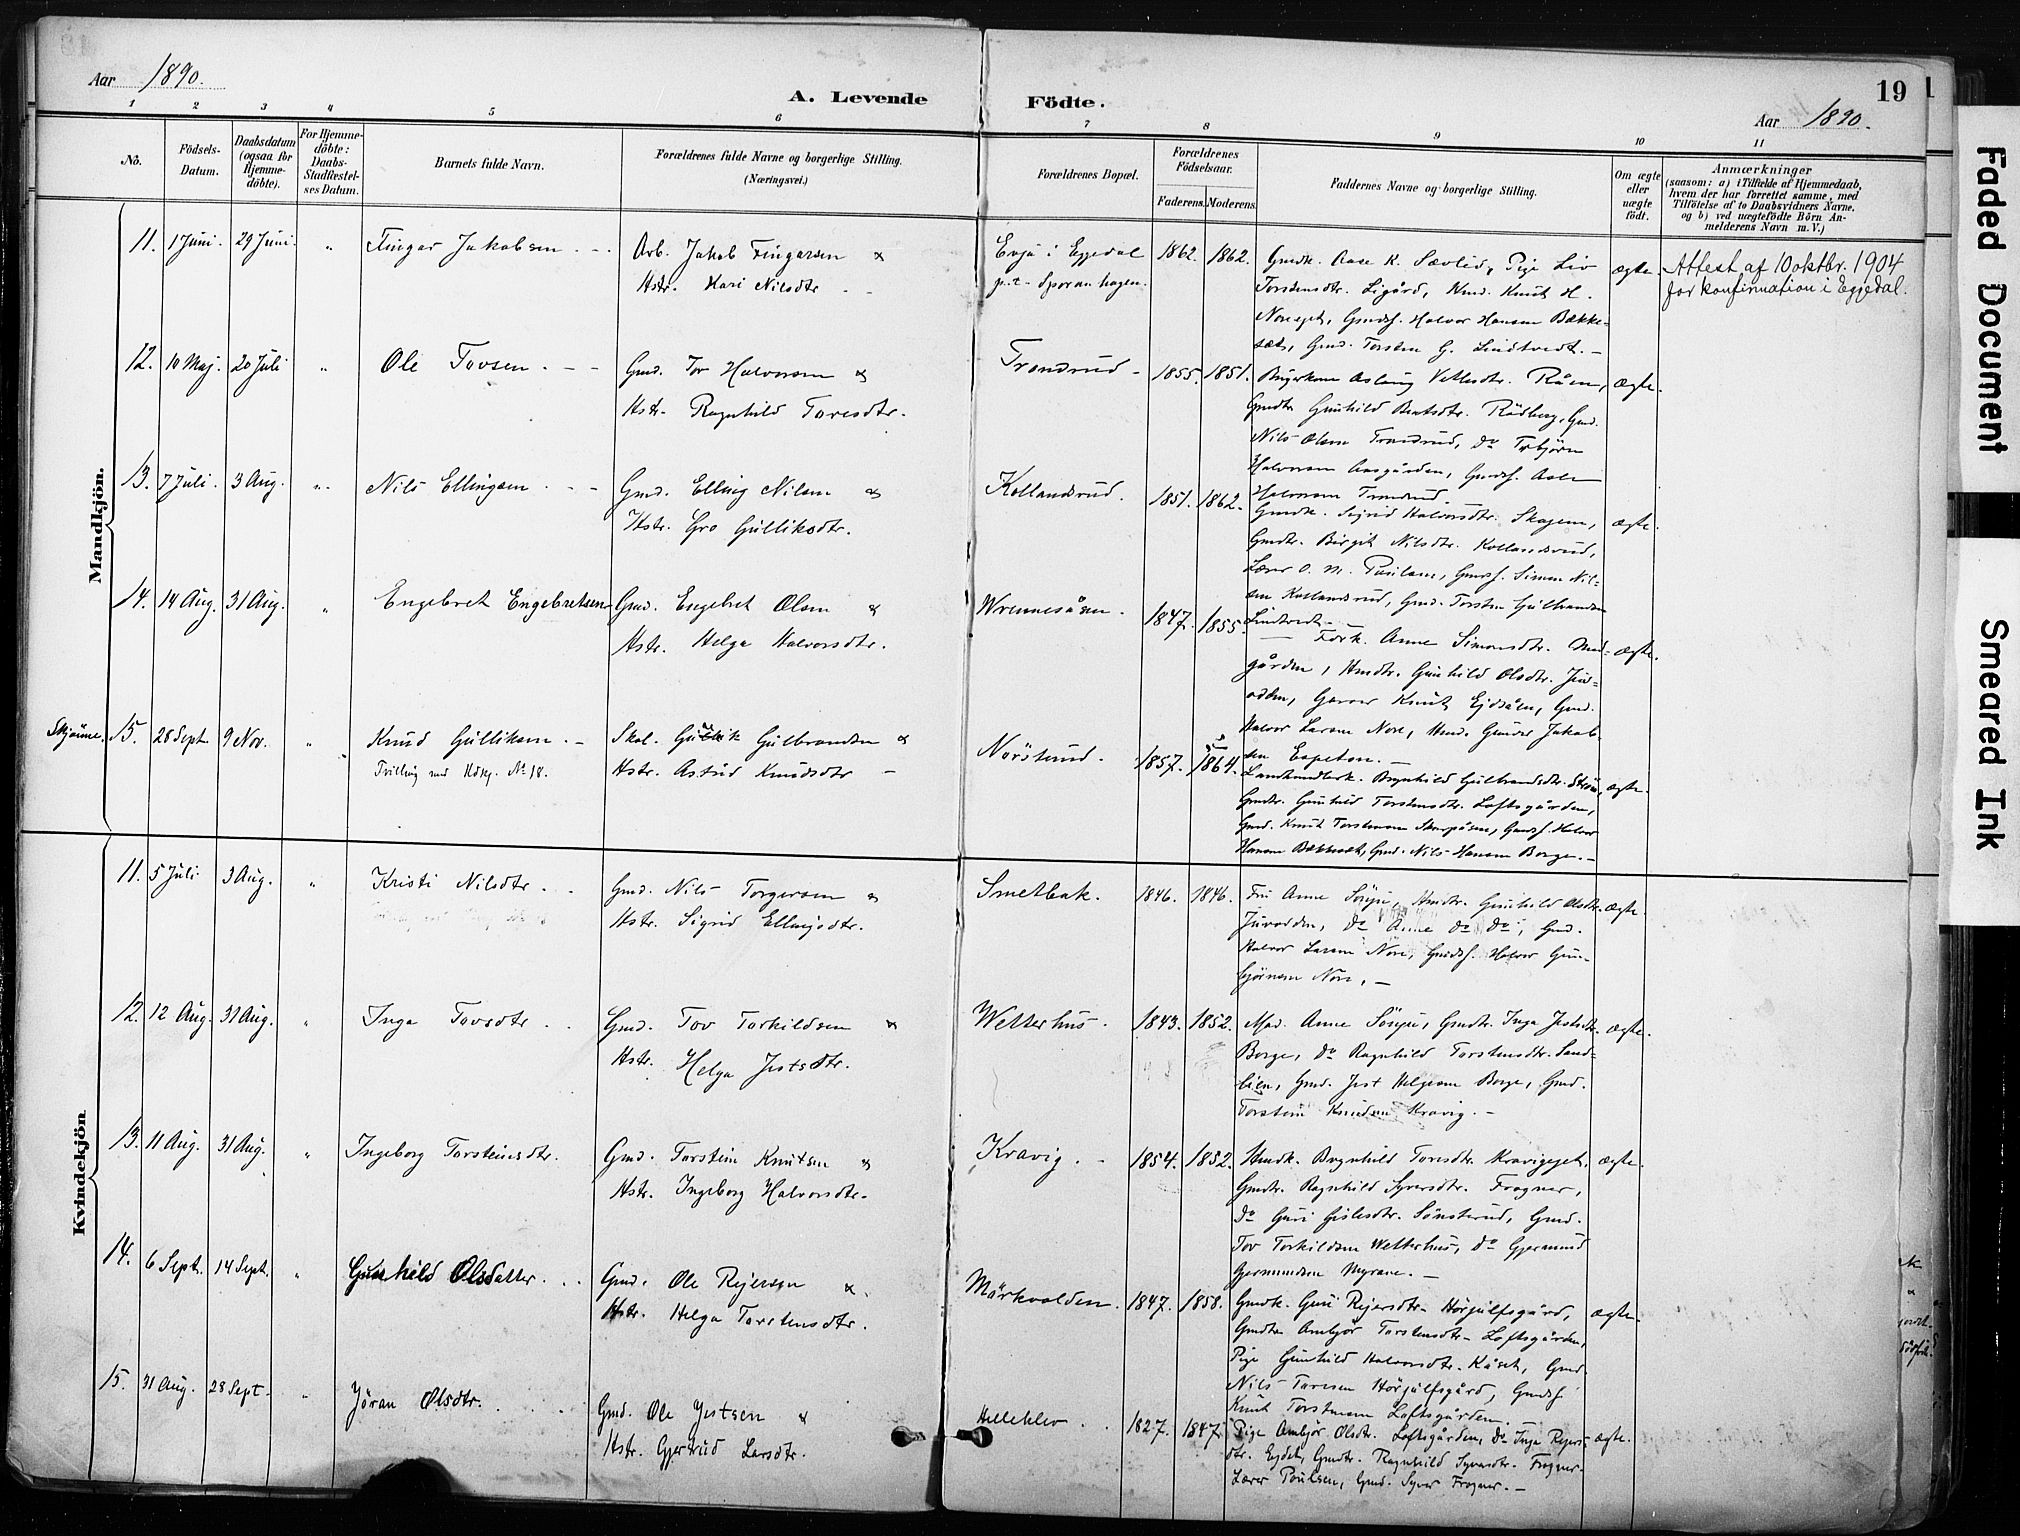 Aar 1890.
A. Levende Födte.
19
Aar 1890.
1 2 3 4 5 6 7 8 9 10 11
No.
Födsels-
Datum.
Daabsdatum
(ogsaa for
Hjemme-
döbte).
For Hjemme-
döbte:
Daabs-
Stadfæstel-
ses Datum.
Barnets fulde Navn.
Forældrenes fulde Navne og borgerlige Stilling.
(Næringsvei.)
Forældrenes Bopæl.
Forældrenes
Födselsaar.
Faderens. Moderens.
Faddernes Navne og borgerlige Stilling.
Om ægte
eller
uægte
født.
Anmærkninger
(saasom: a) i Tilfælde af Hjemmedaab,
hvem der har forrettet samme, med
Tilföielse af to Daabsvidners Navne,
og b) ved uægtefödte Börn An-
melderens Navn m. V.)
Mandkjön.
11. 1 Juni. 29 Juni. " Fingar Jakobsen Arb. Jakob Fingarsen &
Hstr. Kari Nilsdtr
Evju i Eggedal 1862. 1862.
p.t. Sporanhagen.
Gmdk. Aase K. Sævlid, Pige Liv
Torstensdtr. Ligård, Kmd. Knut H.
Noreget, Gmdsf. Halvor Hansen Bække-
sæt, Gmd. Torsten G. Lindtvedt. –
ægte. Attest af 10 oktbr. 1904
for konfirmation i Eggedal.
12. 10 Maj. 20 Juli " Ole Tovsen. Gmd. Tov Halvorsen &
Hstr. Ragnhild Toresdtr.
Trondrud – 1855. 1851.
Aslaug Vetlesdtr. Råen,
Gmdtr. Gunhild Bentsdtr. Rødberg, Gmd.
Nils Olsen Trondrud, Do Torbjørn
Halvorsen Aasgården, Gmdsf.
Halvorsen Trondrud
ægte.
13. 7 Juli. 3 Aug. " Nils Ellingsen Gmd. Elling Nilsen &
Hstr. Gro Gulliksdtr.
Kollandsrud. 1851. 1862.
Gmdk. Sigrid Halvorsdtr. Skagen,
Gmdtr. Birgit Nilsdtr. Kollandsrud,
Lærer O. M. Paulsen, Gmdsf. Simon Nil-
sen Kollandsrud, Gmd. Torsten Gulbrandsen
Lindtvedt. –
ægte.
14. 14 Aug. 31 Aug. " Engebret Engebretsen Gmd. Engebret Olsen &
Hstr. Helga Halvorsdtr.
Wrennesåsen. 1847. 1855.
Fork. Anne Simonsdtr. Mid-
gården, Hmdtr. Gunhild Olsdtr. Juv-
odden, Garver Knut Ejdsåen, Gmd.
Halvor Larsen Nore, Hmd. Gunder Jakob-
sen Espeton. –
ægte.
Skjønne. 15. 28 Sept. 9 Nov. " Knud Gulliksen. – Skol. Gullik Gulbrandsen &
Tvilling med Kdkj. No 18. Hstr. Astrid Knudsdtr –
Nørsterud. 1857. 1864.
Landhandlerk. Brynhild Gulbrandsdtr. Strøm,
Gmdtr. Gunhild Torstensdtr. Loftsgården,
Gmd. Knut Torstensen Skarpåsen, Gmdsf. Halvor
Hansen Bækkesæt, Gmd. Nils Hansen Borge. –
ægte.
Kvindekjön
11. 5 Juli 3 Aug. " Kristi Nilsdtr. Gmd. Nils Torgersen &
Hstr. Sigrid Ellingsdtr.
Smetbak. 1846. 1846.
Fru Anne Sørju, Hmdtr. Gunhild Olsdtr.
Juvodden, Do Anne Do Do, Gmd.
Halvor Larsen Nore, Gmdsf. Halvor Gun-
bjørnsen Nore. –
ægte.
12. 12 Aug. 31 Aug. " Inga Tovsdtr Gmd. Tov Torkildsen &
Hstr. Helga Jestsdtr.
Wetterhus. 1843. 1852.
Mad. Anne Sørju, Gmdtr. Inga Jestsdtr.
Borge, Do Ragnhild Torstensdtr. Sand-
lien, Gmd. Jest Helgesen Borge, Gmd.
Torstein Knudsen Kravig. –
ægte.
13. 11 Aug. 31 Aug. " Ingeborg Torsteinsdtr. Gmd. Torstein Knutsen &
Hstr. Ingeborg Halvorsdtr.
Kravig. – 1854. 1852.
Hmdk. Brynhild Toresdtr. Kravigejet,
Gmdtr. Ragnhild Syversdtr. Frogner,
Do Guri Gislesdtr. Sønsterud, Gmd.
Tov Torkildsen Wetterhus, Do Gjermund
Gjermundsen Myrane. –
ægte.
14. 6 Sept. 14 Sept. " Gunhild Olsdatter Gmd. Ole Rejersen &
Hstr. Helga Torstensdtr.
Mårkvolden. 1847. 1858.
Gmdk. Guri Rejersdtr. Hørjulfsgård,
Gmdtr. Ambjør Torstensdtr. Loftsgården,
Pige Gunhild Halvorsdtr. Kåset, Gmd.
Nils Toresen Hørjulfsgård, Gmdsf
Knut Torstensen Loftsgården.
ægte.
15. 31 Aug. 28 Sept. " Jöran Olsdtr. Gmd. Ole Jestsen &
Hstr. Gjertrud Larsdtr.
Helleklev. 1827. 1847.
Pige Ambjør Olsdtr. Loftsgården, Do Inga Rejers-
dtr. Ejdet, Gmdtr. Ragnhild Syversdtr. Frogner,
Lærer Poulsen, Gmd. Syver Frogner. –
ægte.
Faded Document
Smeared Ink